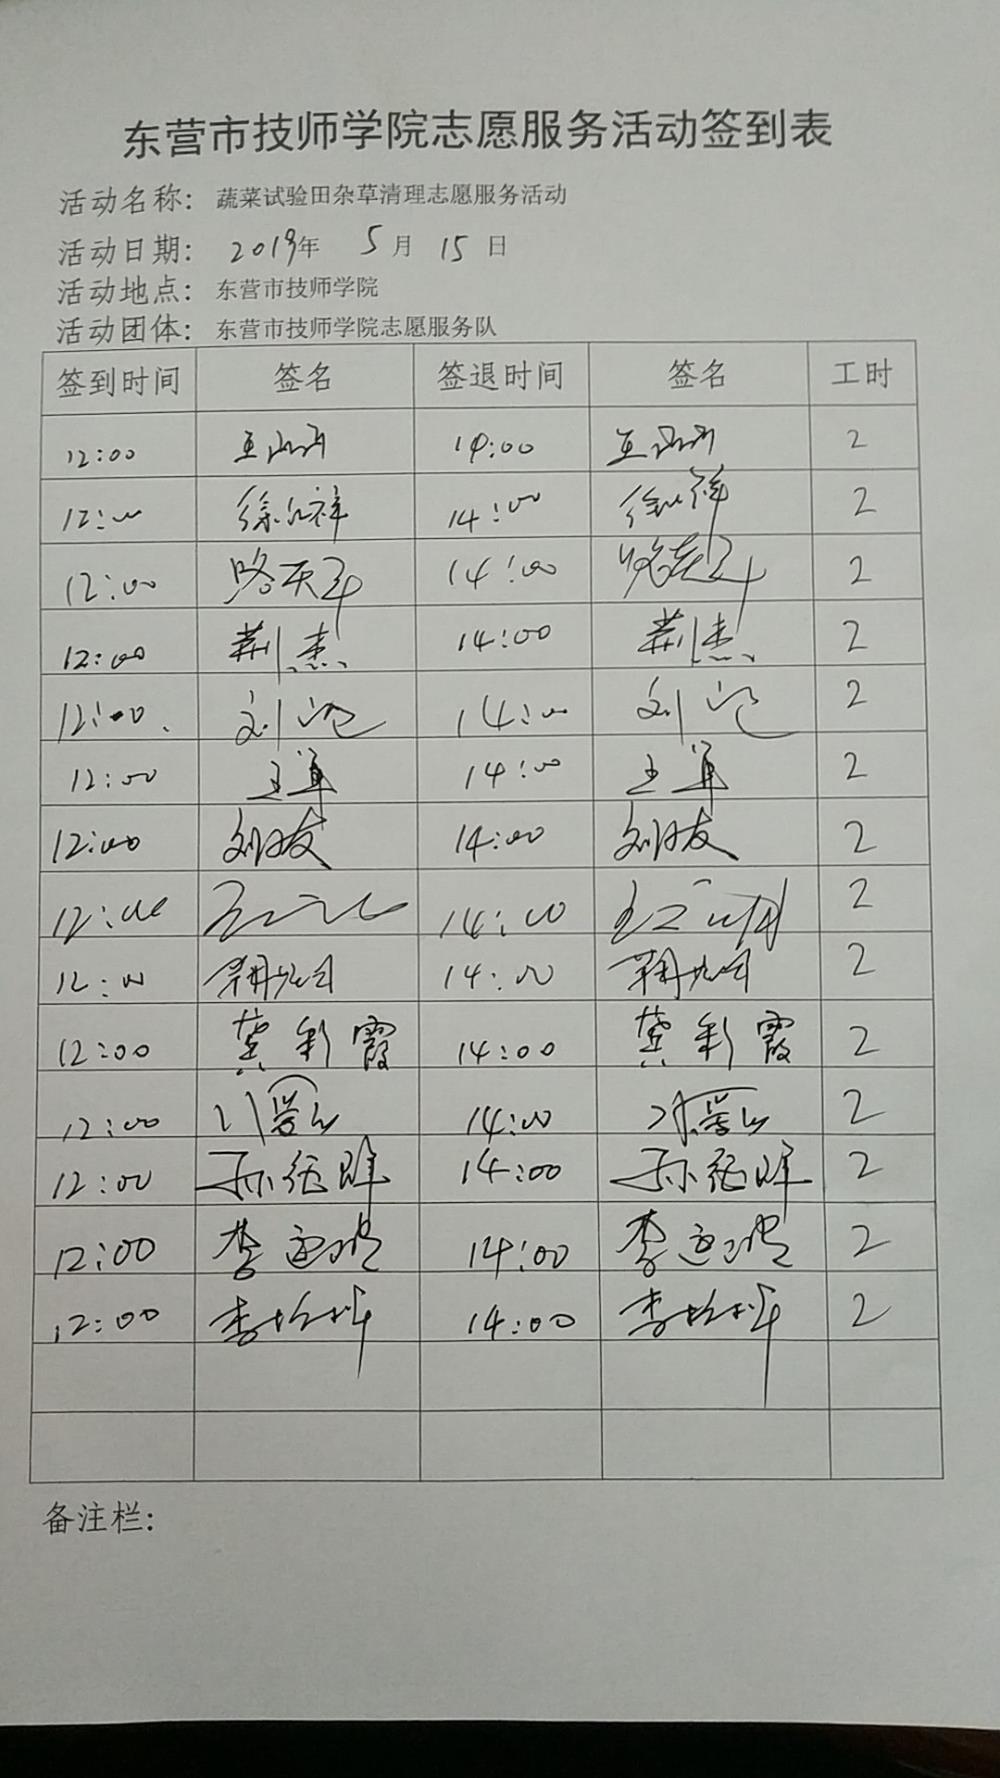 东营市技师学院志愿服务活动签到表
活动名称：蔬菜试验田杂草清理志愿服务活动
活动日期：2019年 5月 15日
活动地点：东营市技师学院
活动团体：东营市技师学院志愿服务队
签到时间 签名 签退时间 签名 工时
12:00 14:00 2
12:00 14:00 2
12:00 14:00 2
12:00 荆杰 14:00 荆杰 2
12:00 刘 14:00 刘 2
12:00 王军 14:00 王军 2
12:00 刘 14:00 刘 2
12:00 14:00 2
12:00 14:00 2
12:00 龚彩霞 14:00 龚彩霞 2
12:00 14:00 2
12:00 孙 14:00 孙 2
12:00 李 14:00 李 2
12:00 李 14:00 李 2
备注栏：